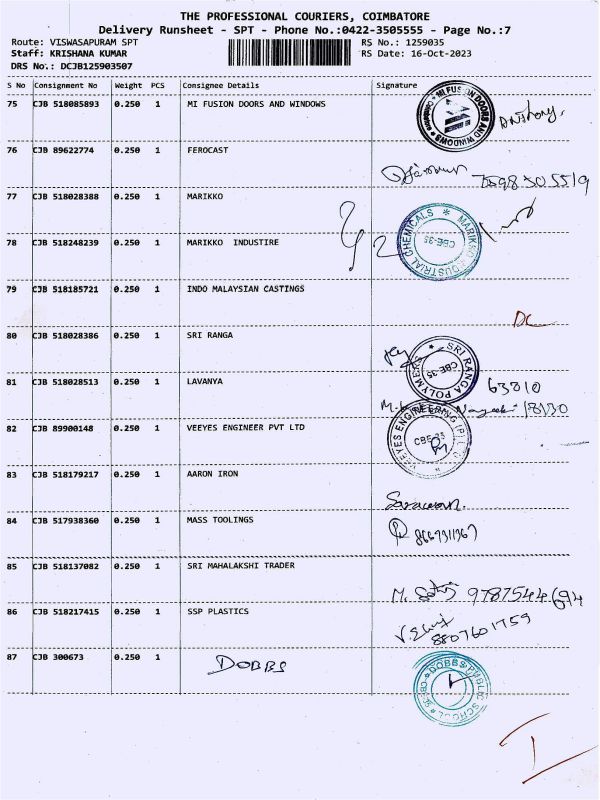 THE PROFESSIONAL COURIERS, COIMBATORE
Delivery Runsheet - SPT - Phone No.:0422-3505555 - Page No.:7
Route: VISWASAPURAM SPT RS No.: 1259035
Staff: KRISHANA KUMAR RS Date: 16-Oct-2023
DRS No.: DCJB125903507
S No Consignment No Weight PCS Consignee Details Signature
75 CJB 518085893 0.250 1 MI FUSION DOORS AND WINDOWS
MI FUSION DOORS AND WINDOWS
Anthony.
76 CJB 89622774 0.250 1 FEROCAST
7598305519
77 CJB 518028388 0.250 1 MARIKKO
78 CJB 518248239 0.250 1 MARIKKO INDUSTIRE
MARIKKO INDUSTRIAL CHEMICALS CBE-35
79 CJB 518185721 0.250 1 INDO MALAYSIAN CASTINGS
DC
80 CJB 518028386 0.250 1 SRI RANGA
SRI RANGA POLYMERS CBE-35
81 CJB 518028513 0.250 1 LAVANYA
63810
18130
82 CJB 89900148 0.250 1 VEEYES ENGINEER PVT LTD
VEEYES ENGINEERING (P) LTD CBE-35
83 CJB 518179217 0.250 1 AARON IRON
Saravanan.
84 CJB 517938360 0.250 1 MASS TOOLINGS
8667311367
85 CJB 518137082 0.250 1 SRI MAHALAKSHI TRADER
M. 9787544694
86 CJB 518217415 0.250 1 SSP PLASTICS
8807601759
87 CJB 300673 0.250 1 DOBBS
DOBBS PUBLIC SCHOOL CBE-35